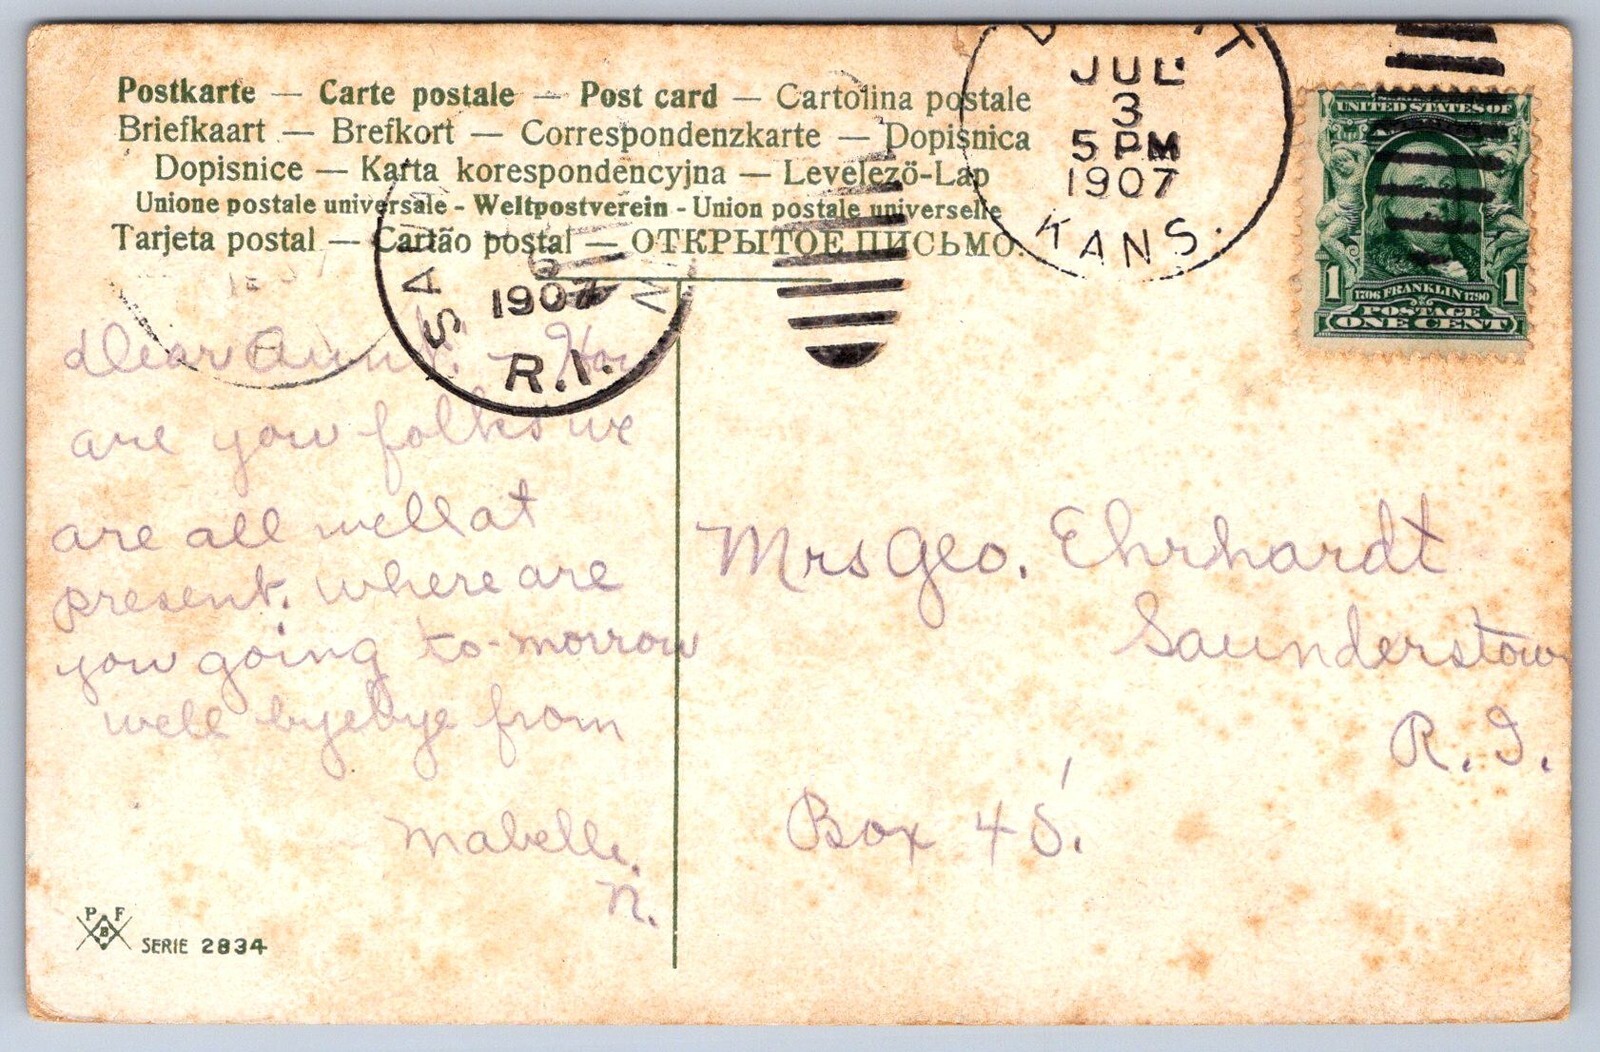 Postkarte — Carte postale — Post card — Cartolina postale
Briefkaart — Brefkort — Correspondenzkarte — Dopisnica
Dopisnice — Karta korespondencyjna — Levelező-Lap
Unione postale universale - Weltpostverein - Union postale universelle
Tarjeta postal — Cartão postal — ОТКРЫТОЕ ПИСЬМО.
JUL
3
5 PM
1907
KANS.
UNITED STATES OF
1 1706 FRANKLIN 1790 1
POSTAGE
ONE CENT
SAUN
6
1907
R.I.
dear Aunt. — How
are you folks we
are all well at
present. where are
you going to-morrow
well byebye from
Mabelle.
N.
Mrs Geo. Ehrhardt
Saunderstown
R. I.
Box 45.
P F
B
SERIE 2834